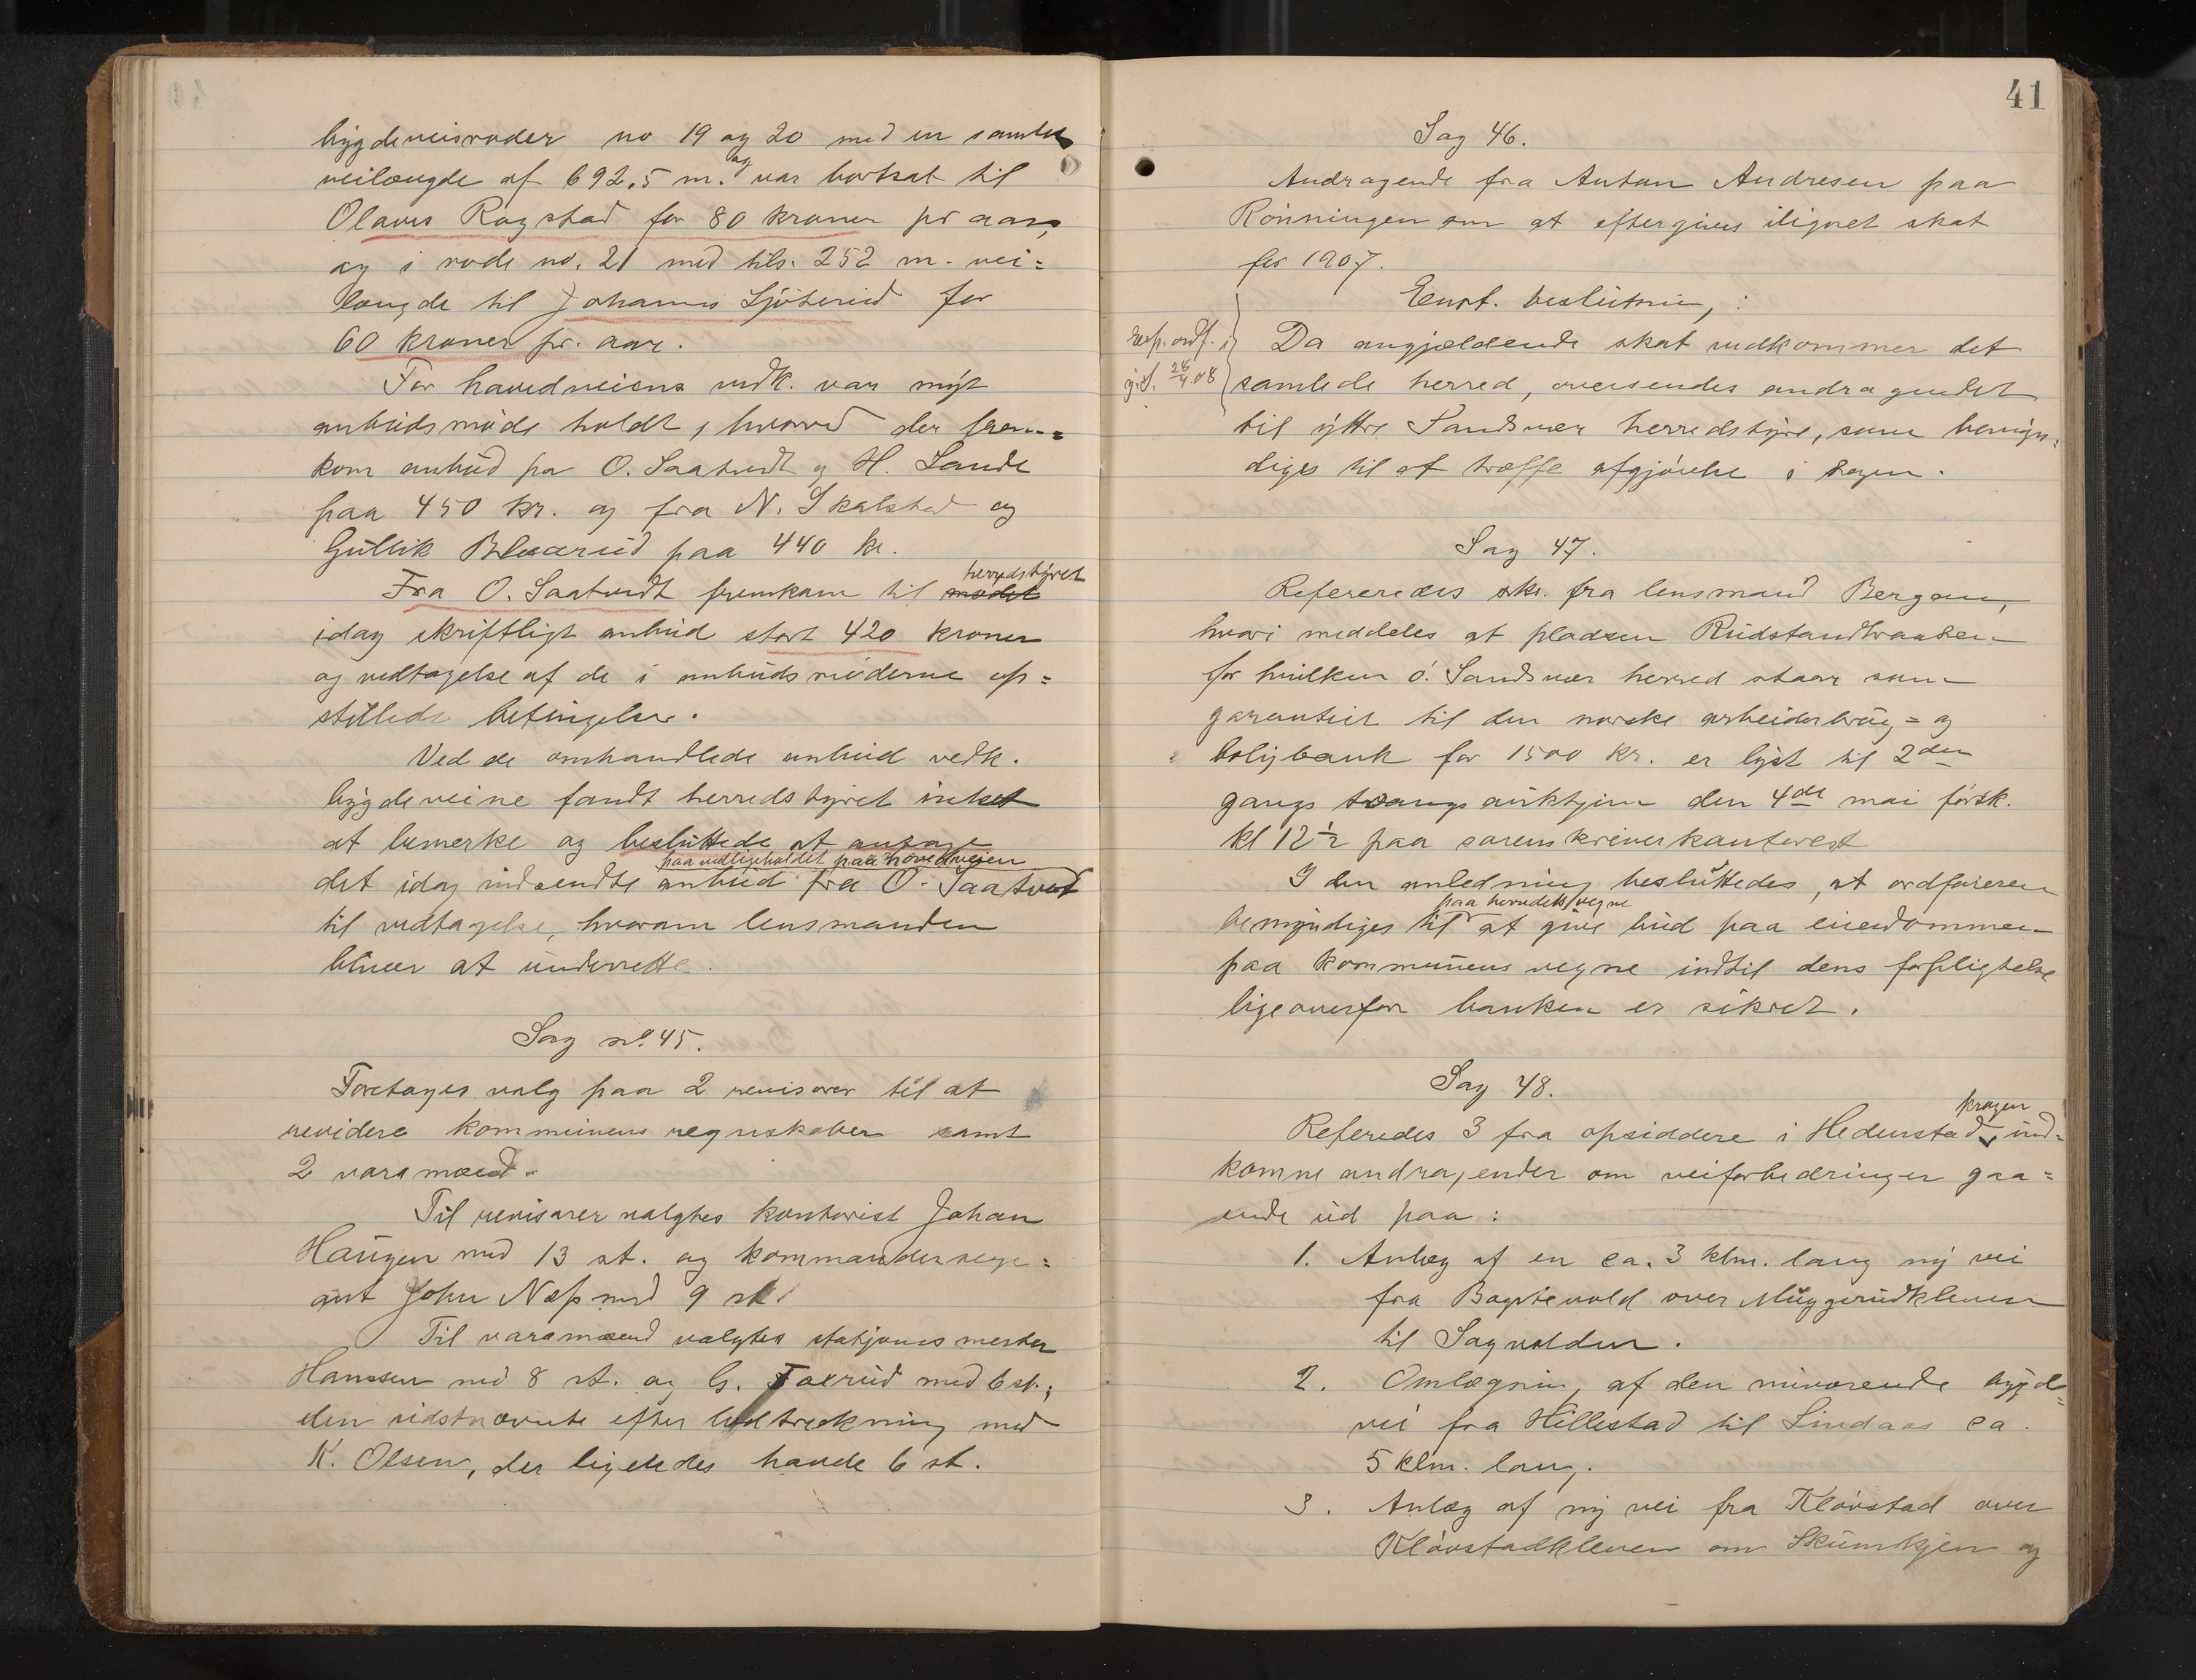 bygdeveisroder no 19 og 20 med en samlet
veilængde af 692,5 m. og var bortsat til
Olaves Rogstad for 80 kroner pr aar,
og i rode no. 21 med tils. 252 m. vei=
længde til Johannes Sjöterud for
60 kroner pr. aar.
For hovedveiens vedk. var nyt
anbudsmöde holdt, hvorved der frem=
kom anbud fra O. Saatvedt og H. Lande
paa 450 kr. og fra N. Skalstad og
Gullik Blaarud paa 440 kr.
Fra O. Saatvedt fremkom til mødet herredstyret
idag skriftligt anbud stort 420 kroner
og vedtagelse af de i anbudsmöderne op=
stillede betingelser.
Ved de omhandlede anbud vedk.
bygdeveine fandt herredstyret intet
at bemerke og besluttede at antage
paa vedligeholdet paa hovedveien
det idag indsendte anbud fra O. Saatvedt
til vedtagelse, hvorom lensmanden
bliver at underrette.
Sag no. 45.
Foretages valg paa 2 revisorer til at
revidere kommunens regnskaber samt
2 varamænd.
Til revisorer valgtes kontorist Johan
Haugen med 13 st. og kommanderserge=
ant John Næss med 9 st.
Til varamænd valgtes stationsmester
Hanssen med 8 st. og G. Foerud med 6 st.;
den sidstnævnte efter lodtrekning med
K. Olsen, der ligeledes havde 6 st.
41
Sag 46.
Andragende fra Anton Andresen paa
Rönningen om at eftergives ilignet skat
for 1907.
Enst. beslutning:
Exp. ordf. i
g.S. 28/4 08
Da angjældende skat vedkommer det
samlede herred, oversendes andragendet
til ýttre Sandsvær herredstyre, som bemyn=
diges til at træffe afgjörelse i sagen.
Sag 47.
Refereredes skr. fra lensmand Bergan,
hvori meddeles at pladsen Rudstandbraaten
for hvilken ö. Sandsvær herred staar som
garantist til den norske arbeiderbrug= og
boligbank for 1500 kr. er lyst til 2den
gangs tvangsauktjon den 4de mai förstk.
kl 12 1/2 paa sorenskriverkontoret
I den anledning besluttedes, at ordføreren
paa herredets vegne
bemyndiges til at give bud paa eiendommen
paa kommunens vegne indtil dens forpligtelse
ligeoverfor banken er sikret.
Sag 48.
Referedes 3 fra opsiddere i Hedenstad krogen ind=
komne andragender om veiforbedringer gaa=
ende ud paa:
1. Anlæg af en ca. 3 klm. lang ny vei
fra Bagstevold over Muggerudkleven
til Sagvolden.
2. Omlægning af den nuværende bygde=
vei fra Hillestad til Lindaas ca.
5 klm. lang.
3. Anlæg af ny vei fra Klövstad over
Klövstadkleven om Skumkjen og